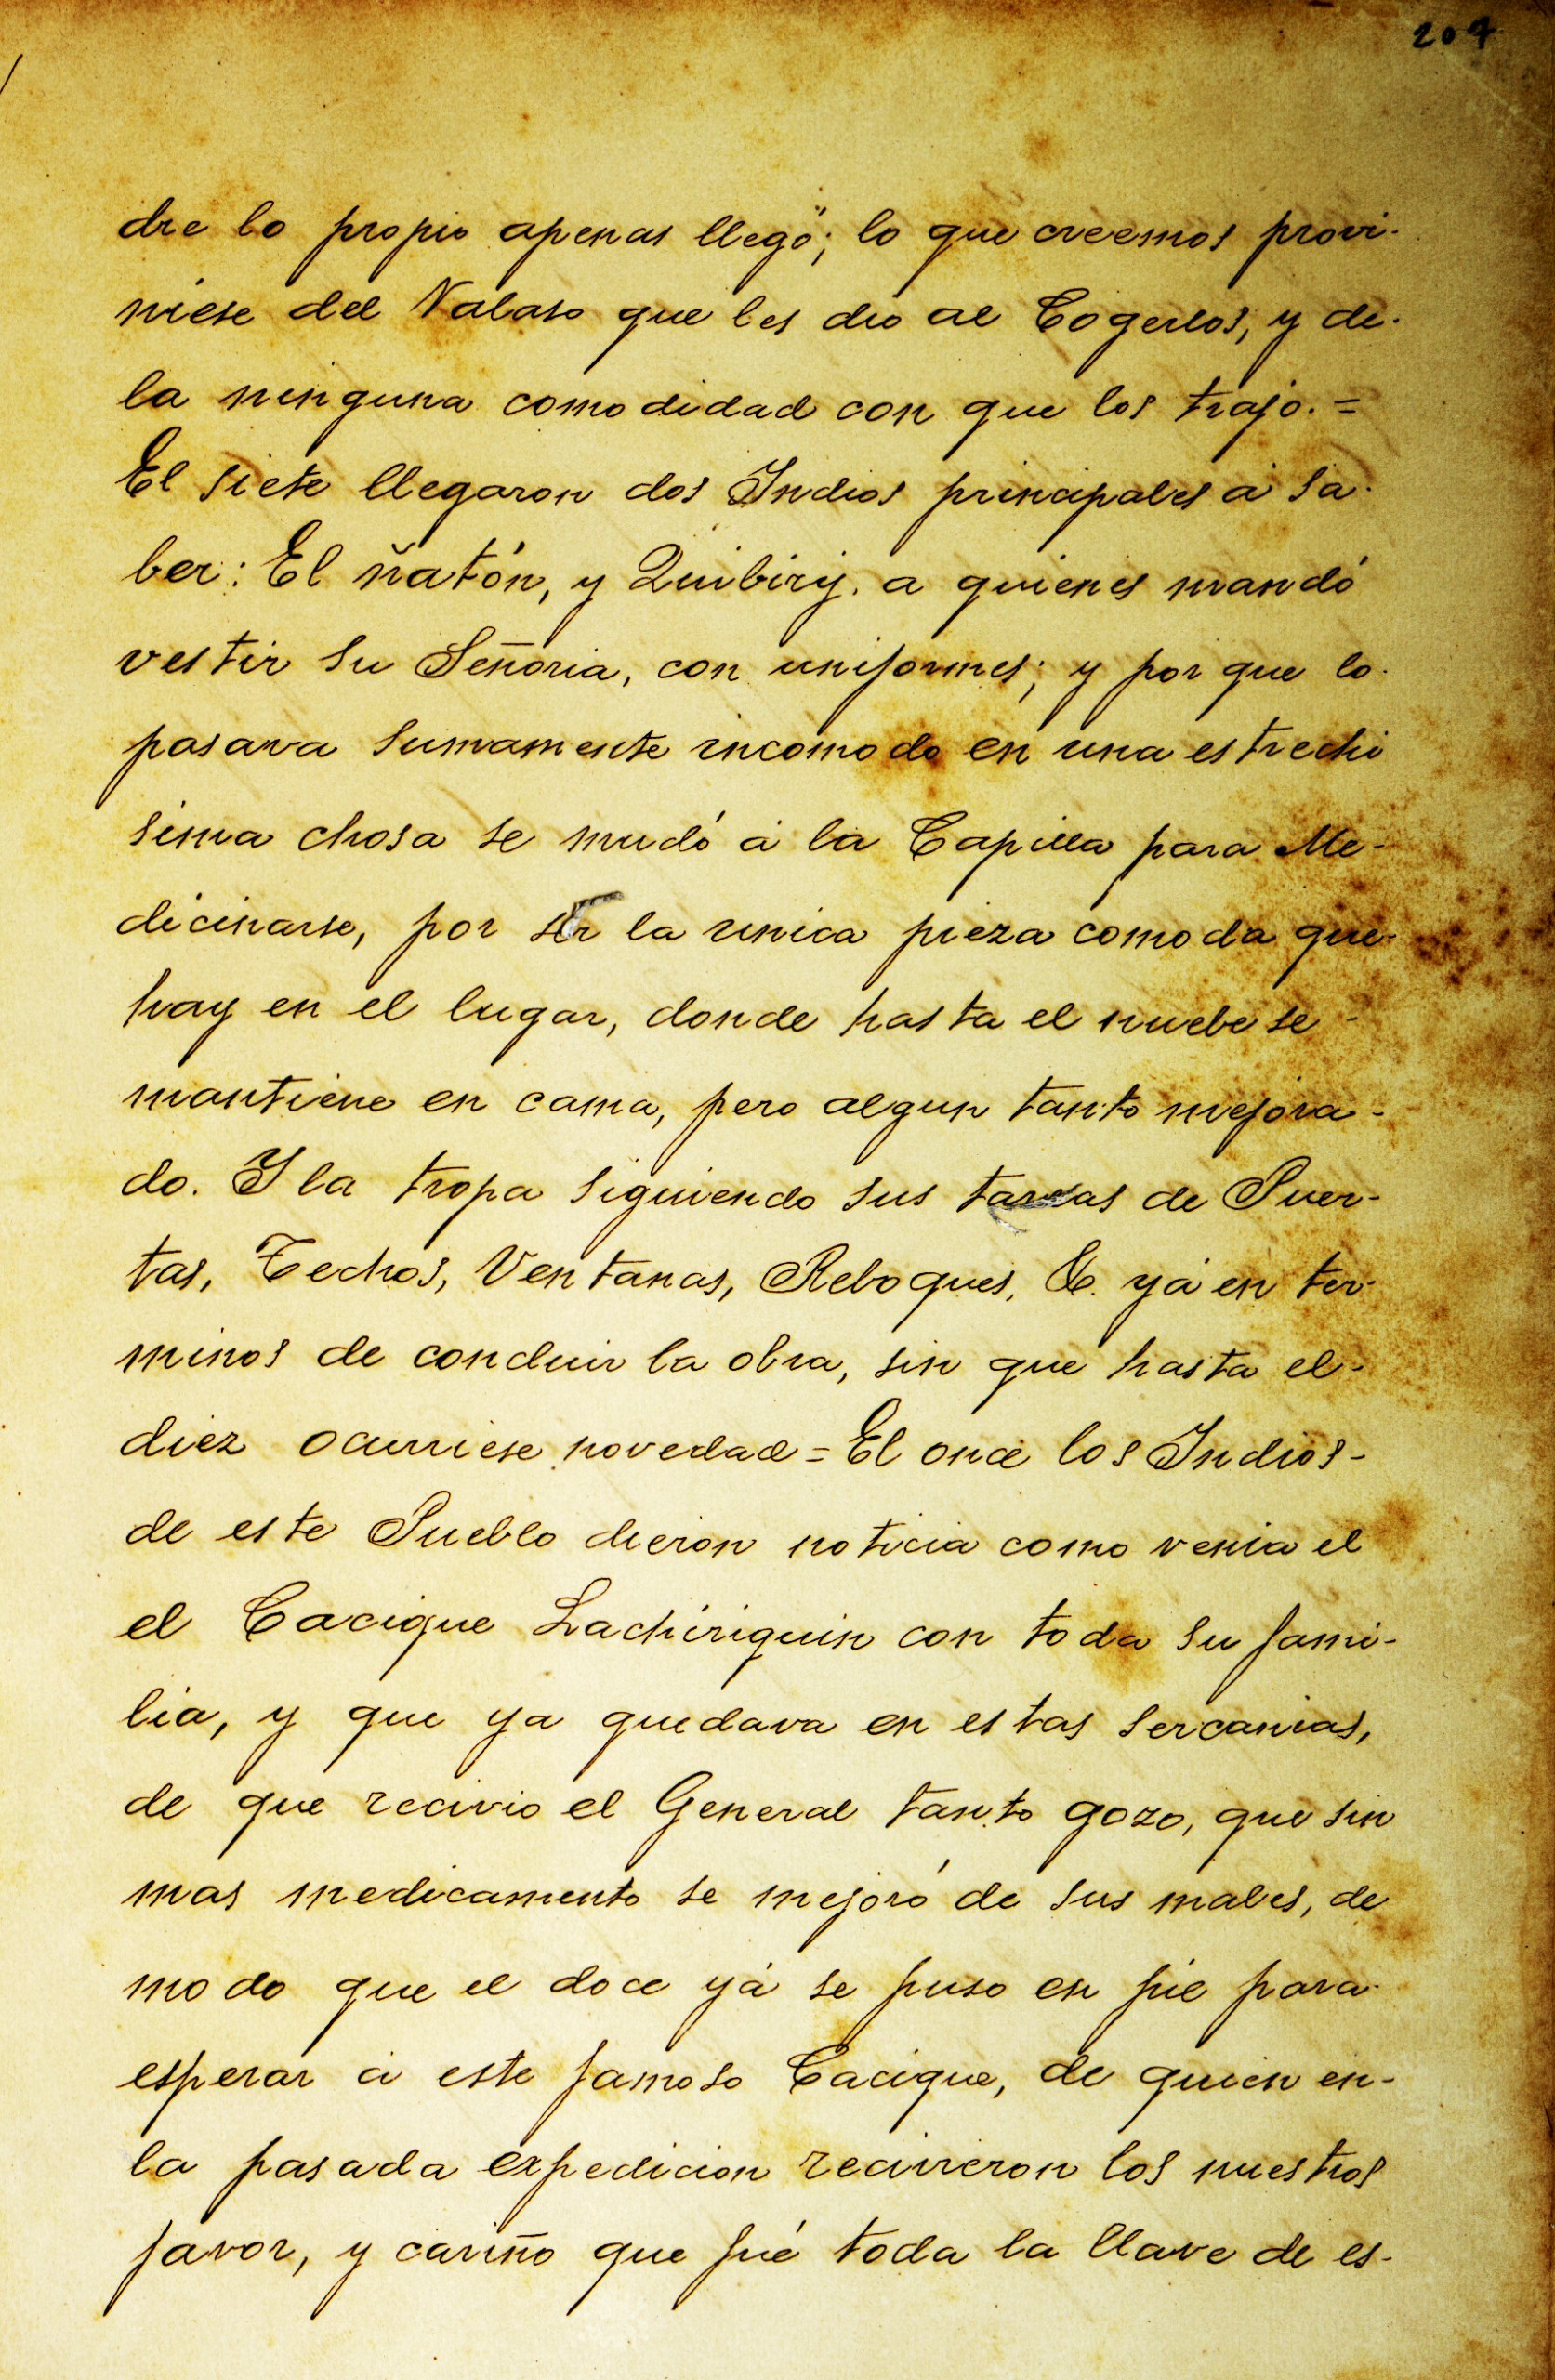 207
dre lo propio apenas llegó; lo que creemos provi-
niese del Valaso que les dio al Cogerlos, y de-
la ninguna comodidad con que los trajo. =
El siete llegaron dos Indios principales á sa-
ber: El ñatón, y Quibiri, a quienes mandó
vestir su Señoria, con uniformes; y por que lo-
pasava sumamente incomodo en una estrechi
sima chosa se mudó á la Capilla para Me-
dicinarse, por ser la unica pieza comoda que-
hay en el lugar, donde hasta el nuebe se-
mantiene en cama, pero algun tanto mejora-
do. Y la tropa siguiendo sus tareas de Puer-
tas, Techos, Ventanas, Reboques, &. yá en ter-
minos de concluir la obra, sin que hasta el-
diez ocurriese novedad = El once los Indios-
de este Pueblo dieron noticia como venia el
el Cacique Lachiriquin con toda su fami-
lia, y que ya quedava en estas sercanias,
de que recivio el General tanto gozo, que sin
mas medicamento se mejoró de sus males, de
modo que el doce yá se puso en pie para-
esperar á este famoso Cacique, de quien en-
la pasada expedicion recivieron los nuestros
favor, y cariño que fué toda la llave de es-